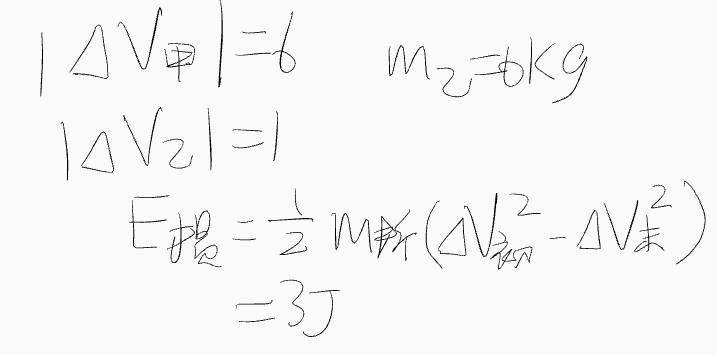 |ΔV甲|=6 m乙=6kg
|ΔV乙|=1
E损=1/2 m折(ΔV初²-ΔV末²)
=3J